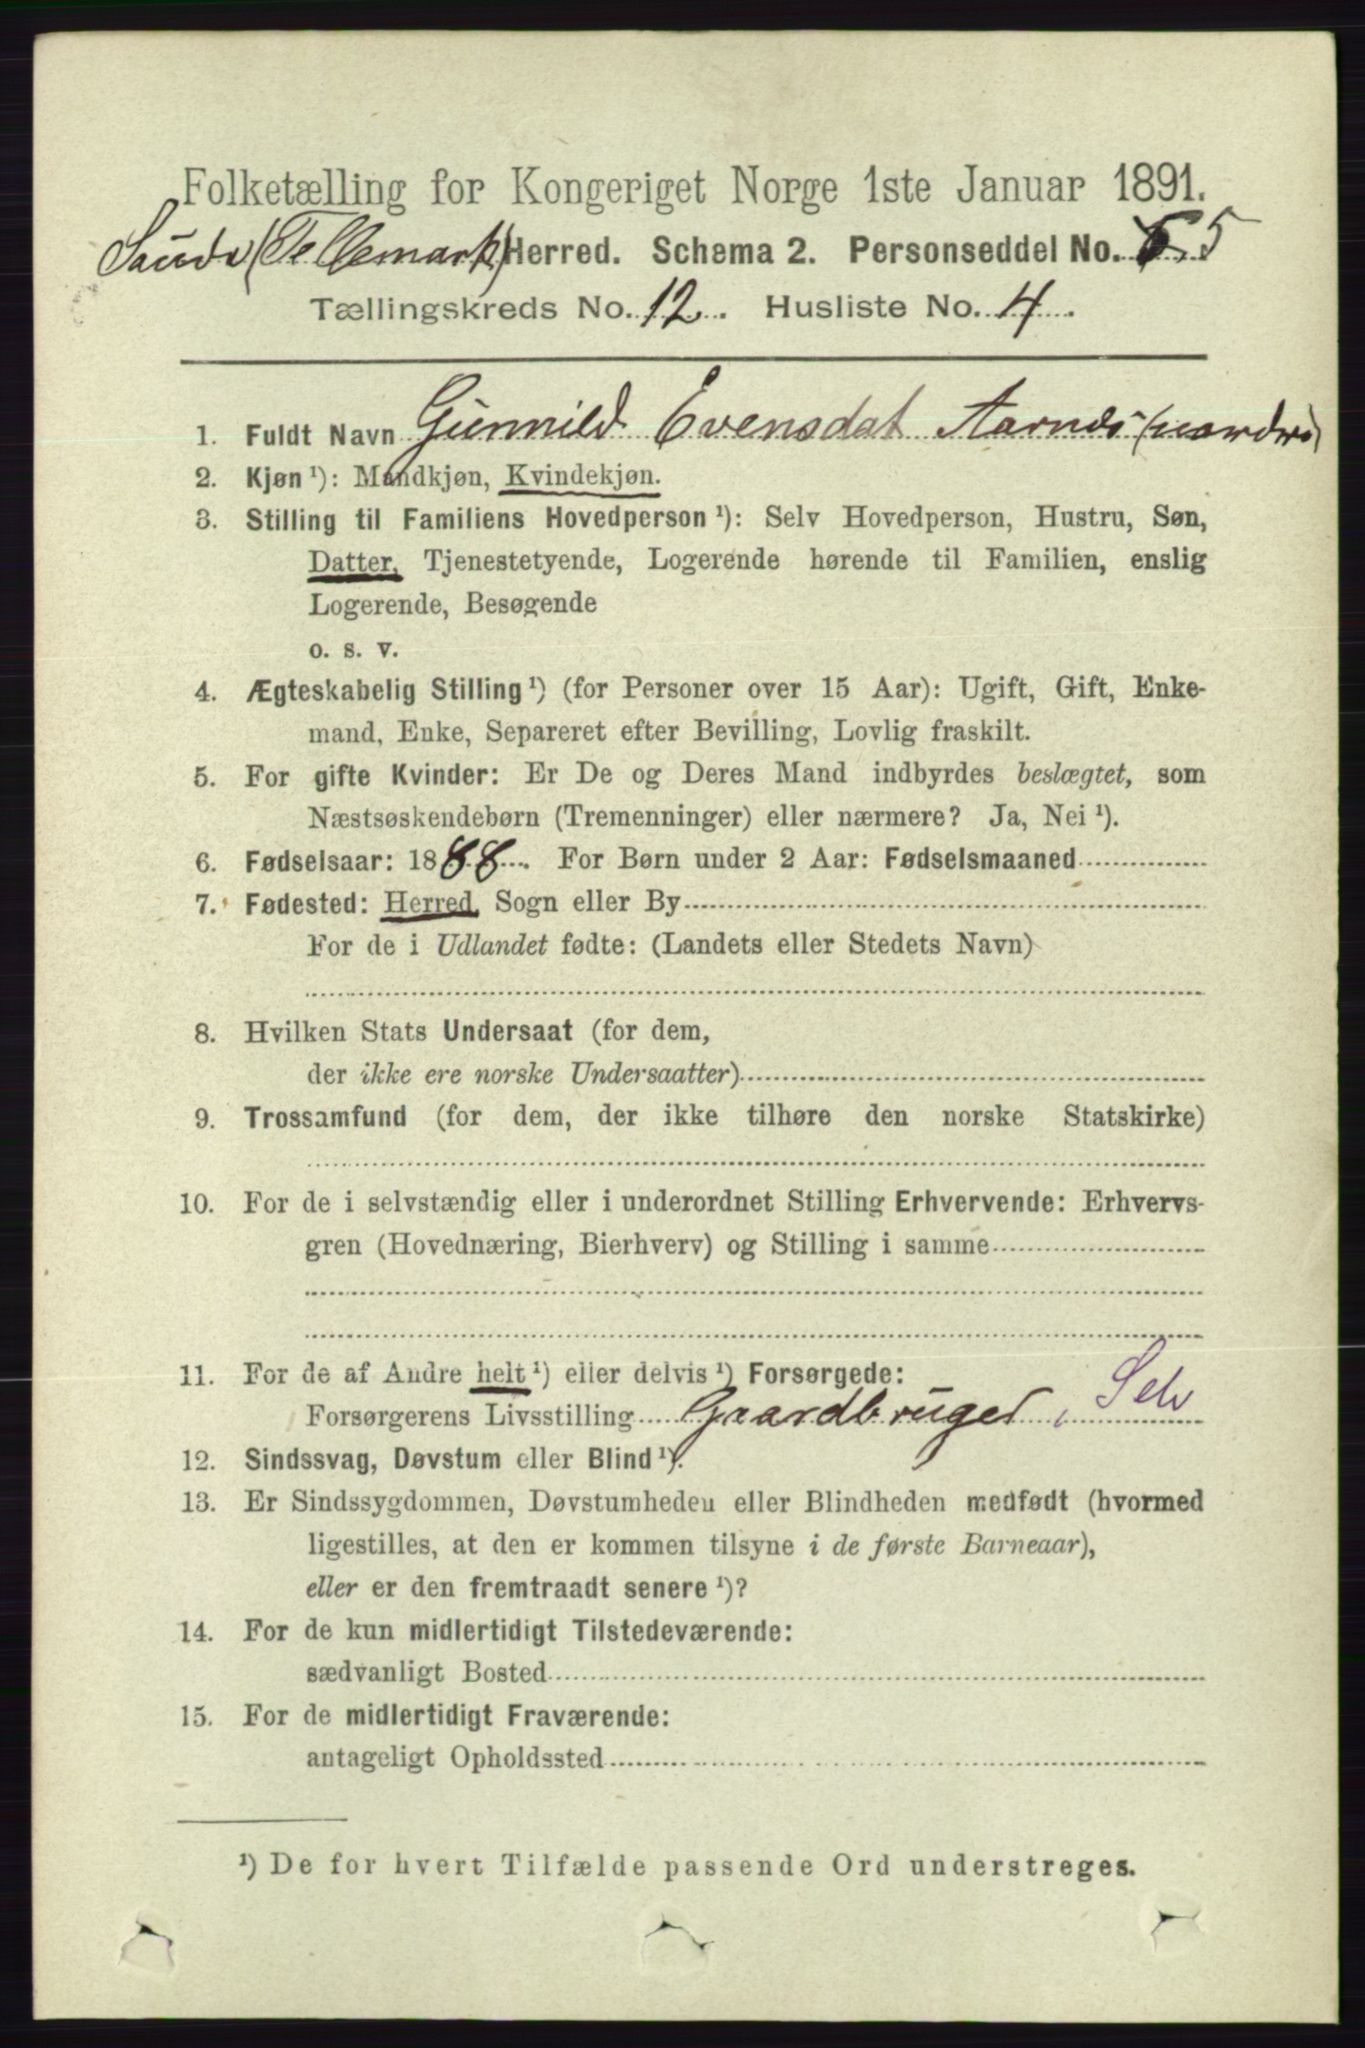 Folketælling for Kongeriget Norge 1ste Januar 1891.
(Tellemark) Herred. Schema 2. Personseddel No. 5
Tællingskreds No. 12. Husliste No. 4.
1. Fuldt Navn Gunnild Evensdat Aarnes (nordre)
2. Kjøn ¹): Mandkjøn, Kvindekjøn.
3. Stilling til Familiens Hovedperson ¹): Selv Hovedperson, Hustru, Søn,
Datter, Tjenestetyende, Logerende hørende til Familien, enslig
Logerende, Besøgende
o. s. v.
4. Ægteskabelig Stilling ¹) (for Personer over 15 Aar): Ugift, Gift, Enke-
mand, Enke, Separeret efter Bevilling, Lovlig fraskilt.
5. For gifte Kvinder: Er De og Deres Mand indbyrdes beslægtet, som
Næstsøskendebørn (Tremenninger) eller nærmere? Ja, Nei ¹).
6. Fødselsaar: 1888. For Børn under 2 Aar: Fødselsmaaned
7. Fødested: Herred, Sogn eller By
For de i Udlandet fødte: (Landets eller Stedets Navn)
8. Hvilken Stats Undersaat (for dem,
der ikke ere norske Undersaatter)
9. Trossamfund (for dem, der ikke tilhøre den norske Statskirke)
10. For de i selvstændig eller i underordnet Stilling Erhvervende: Erhvervs-
gren (Hovednæring, Bierhverv) og Stilling i samme
11. For de af Andre helt ¹) eller delvis ¹) Forsørgede:
Forsørgerens Livsstilling Gaardbruger, Selv
12. Sindssvag, Døvstum eller Blind ¹).
13. Er Sindssygdommen, Døvstumheden eller Blindheden medfødt (hvormed
ligestilles, at den er kommen tilsyne i de første Barneaar),
eller er den fremtraadt senere ¹)?
14. For de kun midlertidigt Tilstedeværende:
sædvanligt Bosted
15. For de midlertidigt Fraværende:
antageligt Opholdssted
¹) De for hvert Tilfælde passende Ord understreges.